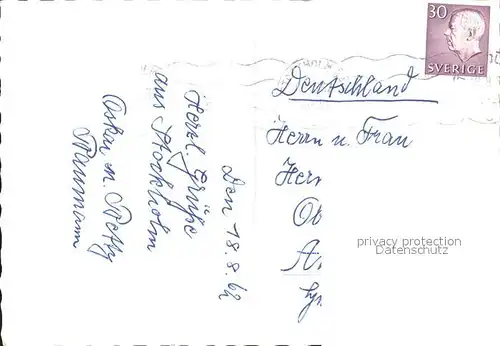 Den 18.8.62
Herzl. Grüße
aus Stockholm
Oskar u.
30
SVERIGE
Deutschland
Herrn u. Frau
Her
Ob
A.
privacy protection
Datenschutz